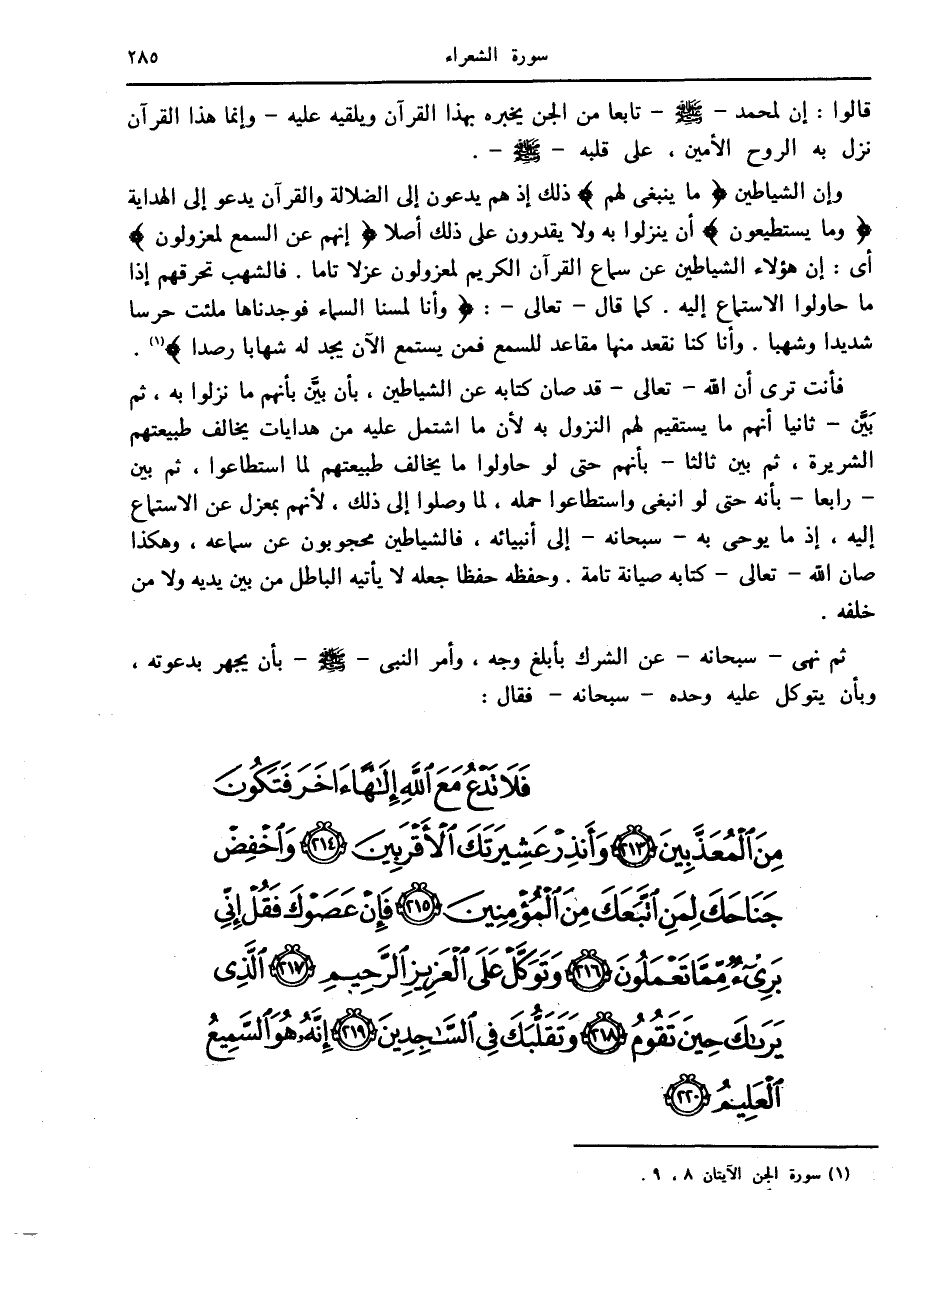 سورة الشعراء ٢٨٥
قالوا : إن لمحمد – ﷺ – تابعا من الجن يخبره بهذا القرآن ويلقيه عليه – وإنما هذا القرآن
نزل به الروح الأمين ، على قلبه – ﷺ – .
وإن الشياطين ﴿ ما ينبغى لهم ﴾ ذلك إذ هم يدعون إلى الضلالة والقرآن يدعو إلى الهداية
﴿ وما يستطيعون ﴾ أن ينزلوا به ولا يقدرون على ذلك أصلا ﴿ إنهم عن السمع لمعزولون ﴾
أى : إن هؤلاء الشياطين عن سماع القرآن الكريم لمعزولون عزلا تاما . فالشهب تحرقهم إذا
ما حاولوا الاستماع إليه . كما قال – تعالى – : ﴿ وأنا لمسنا السماء فوجدناها ملئت حرسا
شديدا وشهبا . وأنا كنا نقعد منها مقاعد للسمع فمن يستمع الآن يجد له شهابا رصدا ﴾(١) .
فأنت ترى أن الله – تعالى – قد صان كتابه عن الشياطين ، بأن بيَّن بأنهم ما نزلوا به ، ثم
بَيَّن – ثانيا أنهم ما يستقيم لهم النزول به لأن ما اشتمل عليه من هدايات يخالف طبيعتهم
الشريرة ، ثم بين ثالثا – بأنهم حتى لو حاولوا ما يخالف طبيعتهم لما استطاعوا ، ثم بين
– رابعا – بأنه حتى لو انبغى واستطاعوا حمله ، لما وصلوا إلى ذلك ، لأنهم بمعزل عن الاستماع
إليه ، إذ ما يوحى به – سبحانه – إلى أنبيائه ، فالشياطين محجوبون عن سماعه ، وهكذا
صان الله – تعالى – كتابه صيانة تامة . وحفظه حفظا جعله لا يأتيه الباطل من بين يديه ولا من
خلفه .
ثم نهى – سبحانه – عن الشرك بأبلغ وجه ، وأمر النبى – ﷺ – بأن يجهر بدعوته ،
وبأن يتوكل عليه وحده – سبحانه – فقال :
فَلَا تَدْعُ مَعَ ٱللَّهِ إِلَٰهًا ءَاخَرَ فَتَكُونَ
مِنَ ٱلْمُعَذَّبِينَ ﴿٢١٣﴾ وَأَنذِرْ عَشِيرَتَكَ ٱلْأَقْرَبِينَ ﴿٢١٤﴾ وَٱخْفِضْ
جَنَاحَكَ لِمَنِ ٱتَّبَعَكَ مِنَ ٱلْمُؤْمِنِينَ ﴿٢١٥﴾ فَإِنْ عَصَوْكَ فَقُلْ إِنِّى
بَرِىٓءٌ مِّمَّا تَعْمَلُونَ ﴿٢١٦﴾ وَتَوَكَّلْ عَلَى ٱلْعَزِيزِ ٱلرَّحِيمِ ﴿٢١٧﴾ ٱلَّذِى
يَرَىٰكَ حِينَ تَقُومُ ﴿٢١٨﴾ وَتَقَلُّبَكَ فِى ٱلسَّٰجِدِينَ ﴿٢١٩﴾ إِنَّهُۥ هُوَ ٱلسَّمِيعُ
ٱلْعَلِيمُ ﴿٢٢٠﴾
(١) سورة الجن الآيتان ٨ ، ٩ .